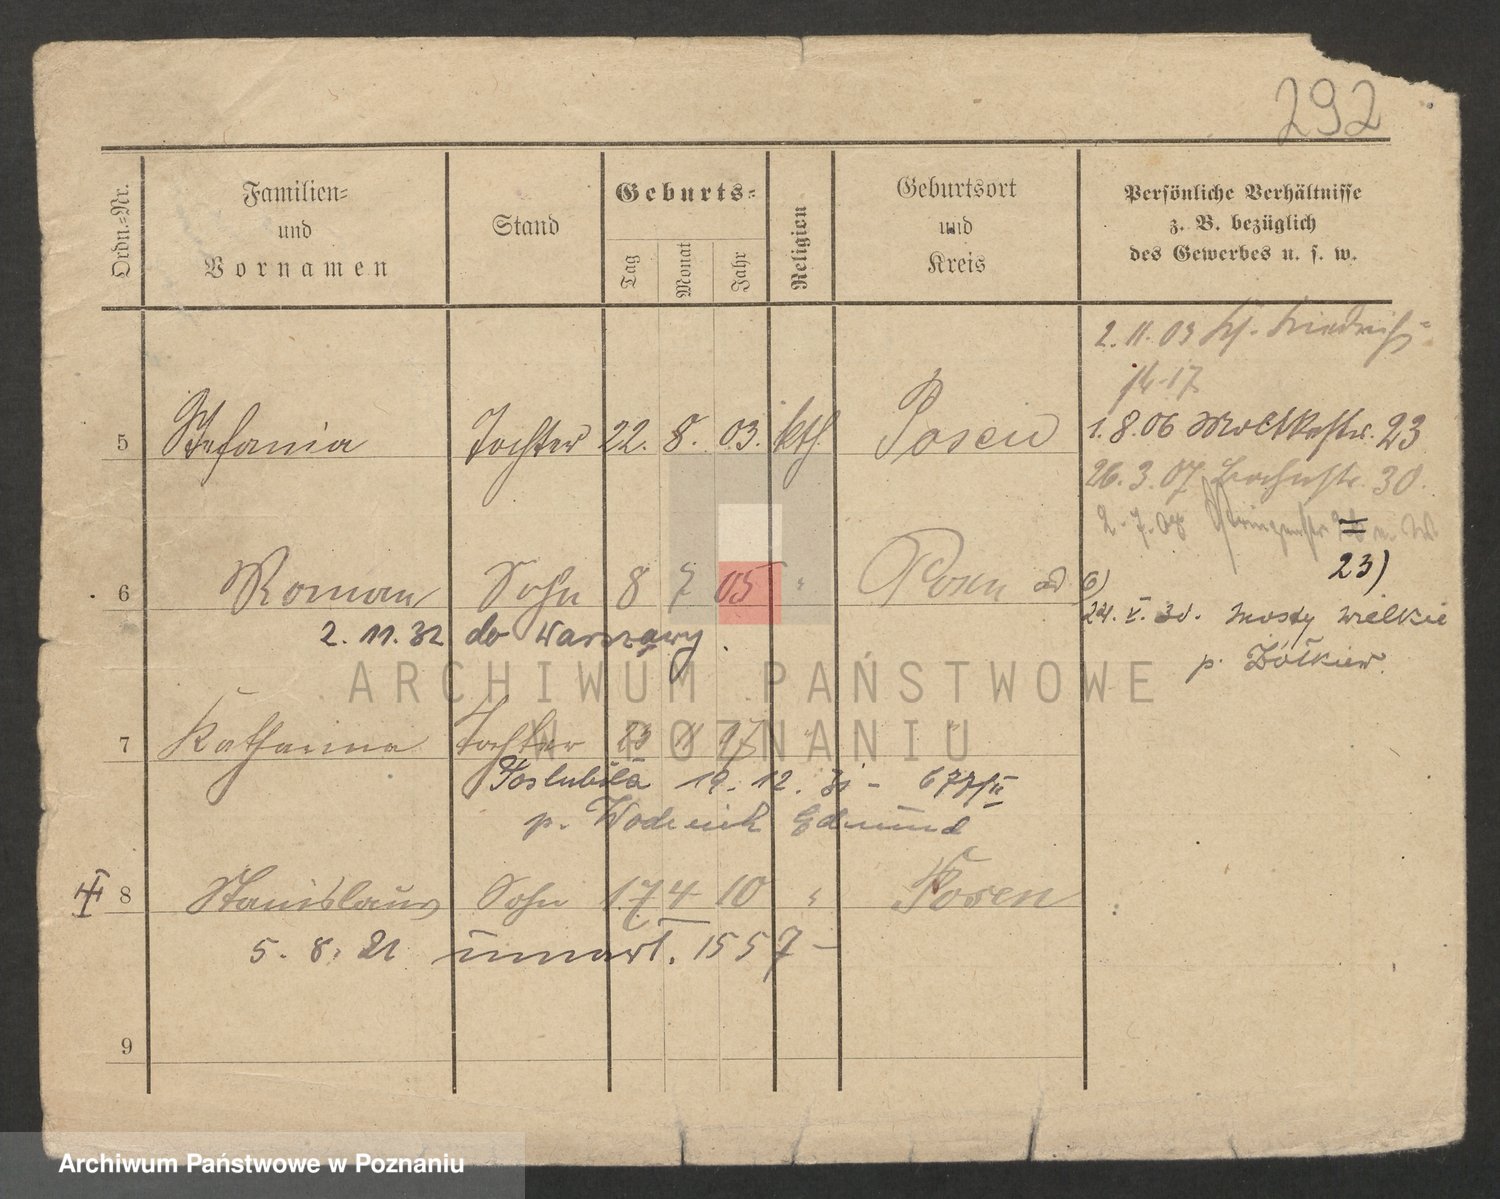 292
Ordn.=Nr.
Familien=
und
Vornamen
Stand
Geburts=
Tag
Monat
Jahr
Religion
Geburtsort
und
Kreis
Persönliche Verhältnisse
z. B. bezüglich
des Gewerbes u. s. w.
2. 11. 03
17
5 Stefania Tochter 22. 8. 03. kth Posen 1. 8. 06 Moltkestr. 23
26. 3. 07 30.
2. 7. 08
23)
6 Roman Sohn 8 7 05 " Posen ad 6)
2. 11. 32 do Warszawy
24. V. 30. Mosty Wielkie
p. Żółkiew.
7 Katharina Tochter 23 11 97
Poslubiła 19. 12. 31 - 677/II
p. Edmund
8 Stanislaus Sohn 17 4 10 " Posen
5. 8. 21 umarł. 1557 -
9
ARCHIWUM PAŃSTWOWE
W POZNANIU
Archiwum Państwowe w Poznaniu